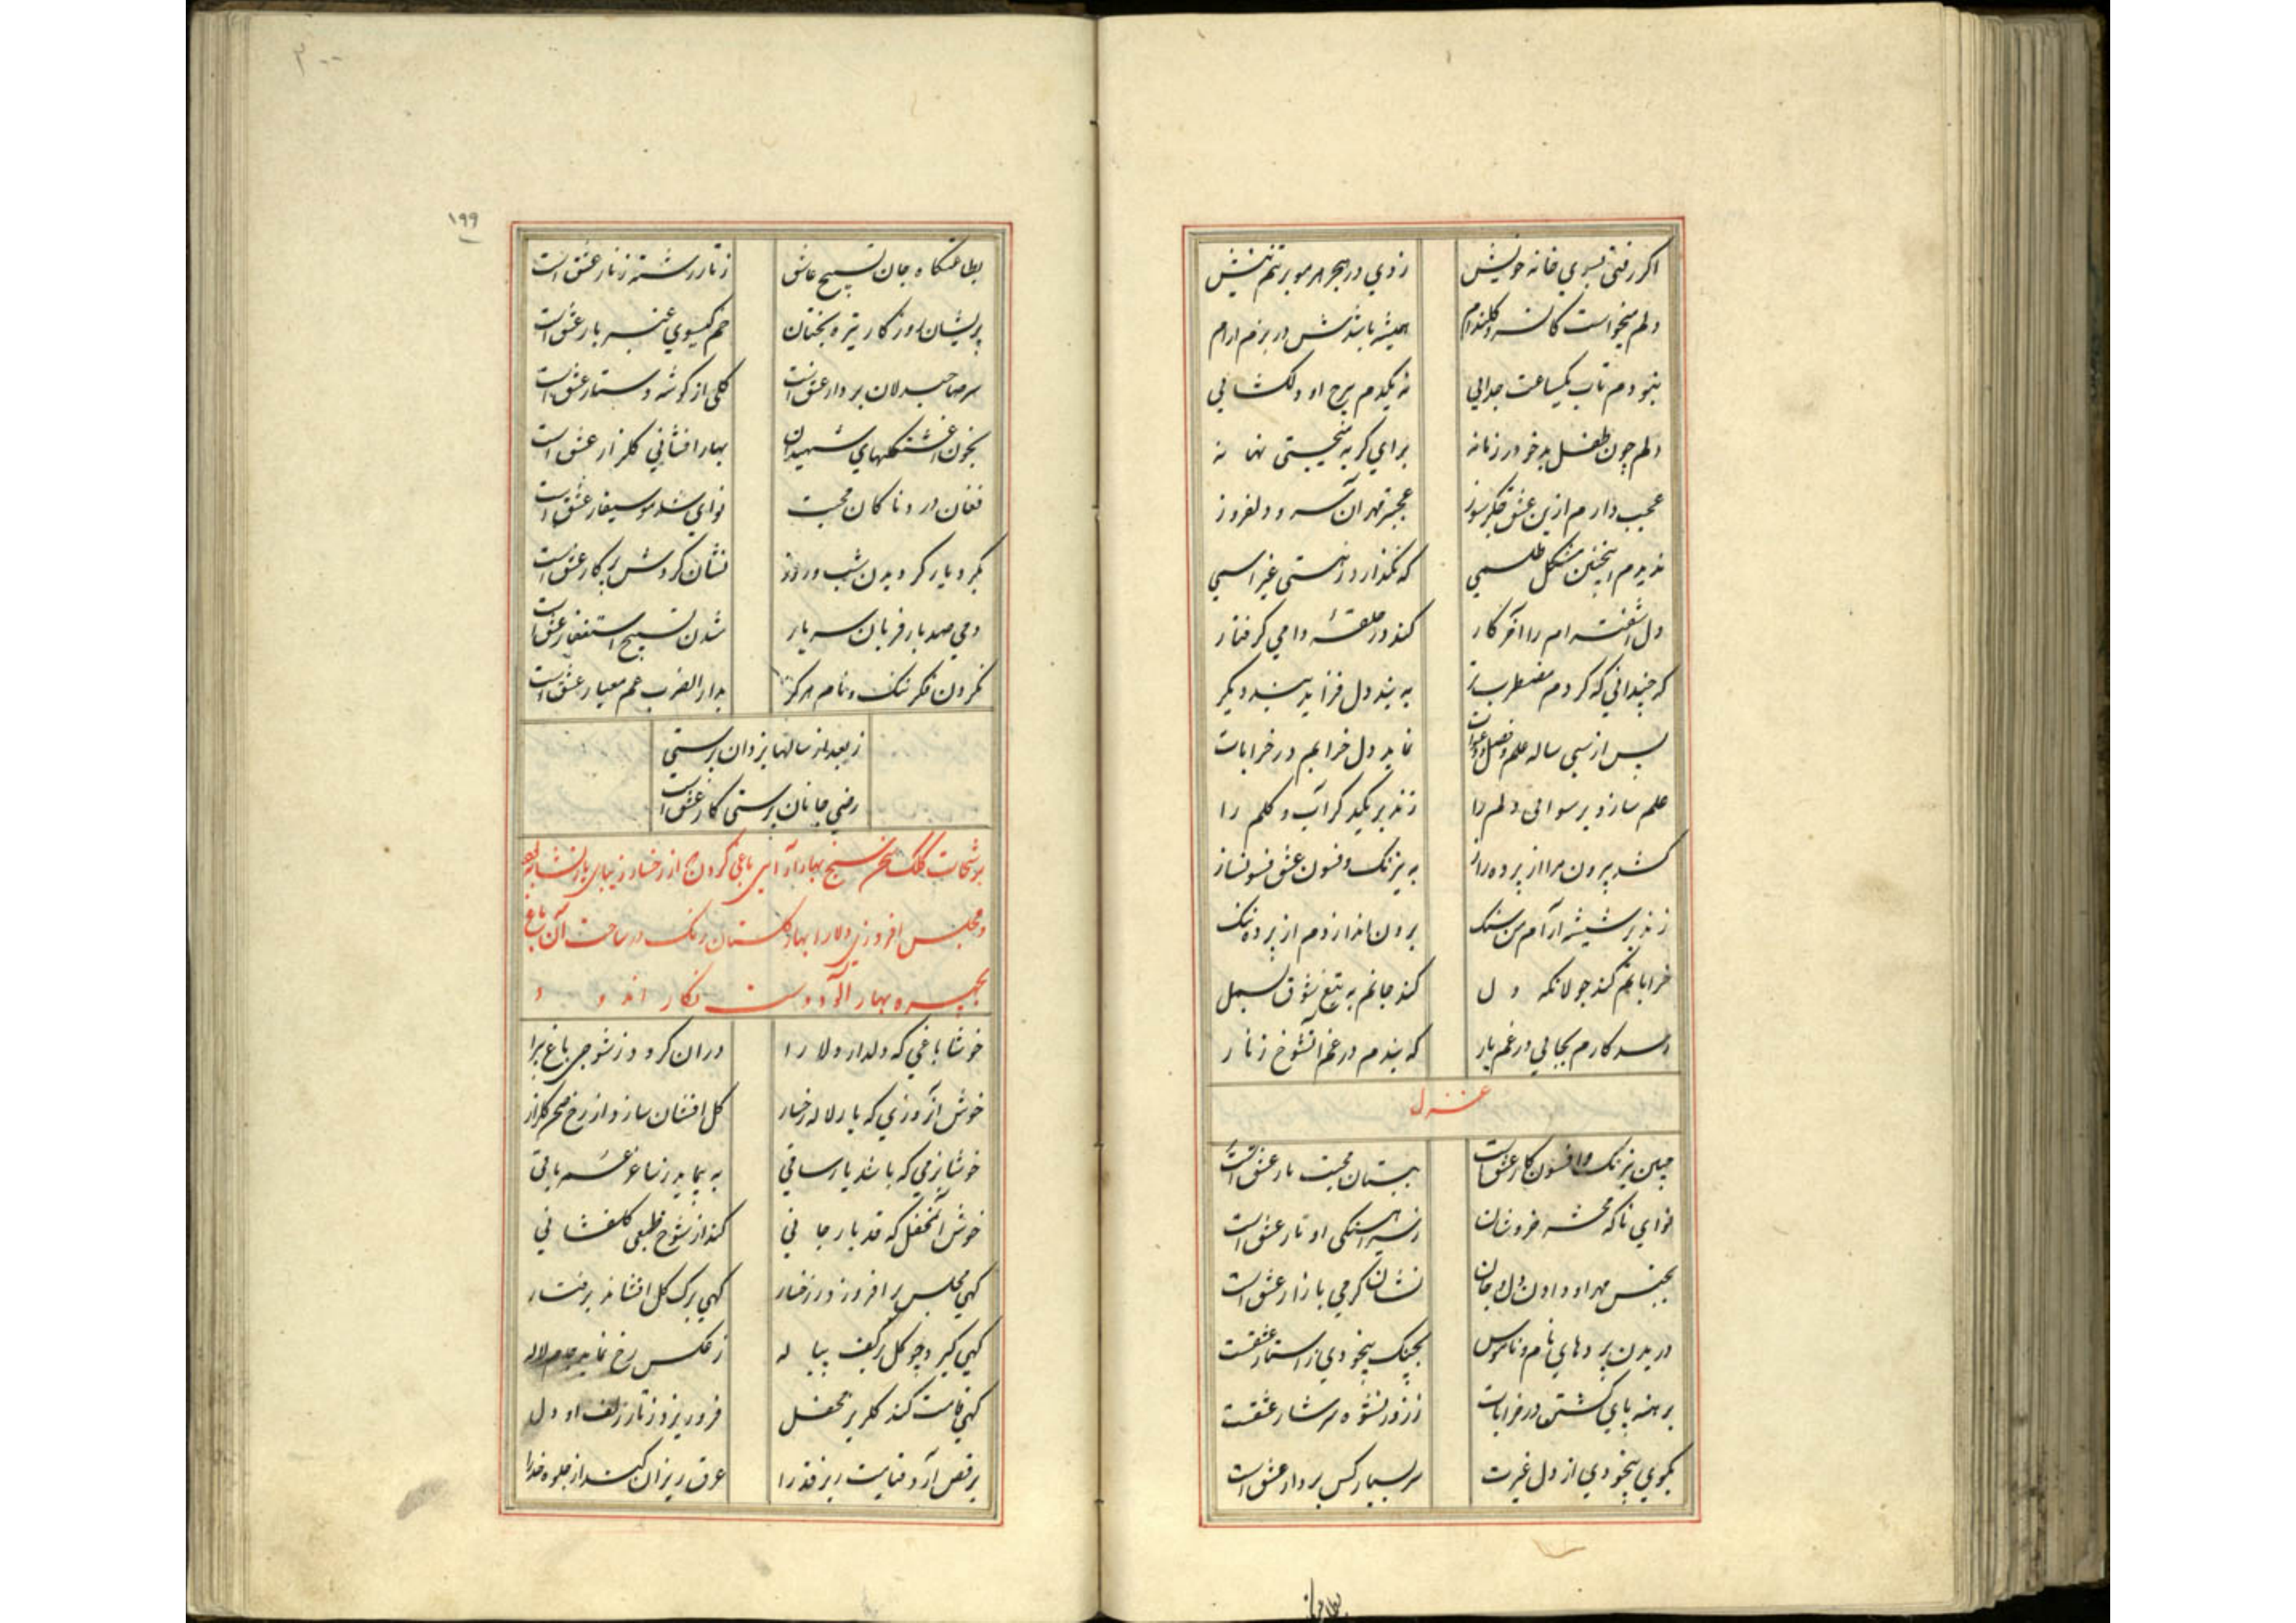 اکر رفتی بسوي خانه خویش زدي در هجر هر مو بر تنم نیش
دلم میخواست کان سرو کلندام همیشه باشدش در بزم ارام
نبودم تاب یکساعت جدایی نه یکدم برج او دلکشایی
دلم چون طفل بدخو در زمانه براي کریه میجستی بهانه
عجب دارم ازین عشق جکرسوز عجبتر مهر آن سرو دلفروز
ندیدم اینچنین مشکل طلسمی که نکذارد ز هستی غیر اسمی
دل اشفته ام را آخر کار کند در حلقه دامی کرفتار
که چندانی که کردم مضطرب تر به بند دل فزاید بند دیکر
پس از سی ساله علم و فضل و نماید دل خرابم در خرابات
علم سازد برسوائی دلم را زند بر یکدکر آب و کلم را
کشد بیرون مرا از پرده راز به نیرنک و فسون عشق فسونساز
زند بر شیشه آرام من سنک برون اندازدم از پرده ننک
خراباتم کند جولانکه دل کند جانم به تیغ شوق بسمل
رسد کارم بجایی در غم یار که بندم در غم آنشوخ زنار
غزل
چنین نیرنک و افسون کار عشق است ببستان محبت بار عشق است
نواي ناکه محشر خروشان ز سیر اهنکی اوتار عشق است
بجنس مهر او دادن دل و جان نشان کرمی بازار عشق است
دریدن پردهاي نام و ناموس بچنک بیخودي از تار عشقست
برهنه پاي کشتن در خرابات ز زور نشوه سرشار عشقست
بکوي بیخودي از دل غیرت سر بسیار کس بر دار عشق است
۲۰۰
۱۹۹
بطاعتکاه جان تسبیح عاشق ز تار رشته زنار عشق است
پریشان روزکار تیره بختان خم کیسوي عنبر بار عشق است
سر صاحبدلان بر دار عشق است کلی از کوشه دستار عشق است
بخون اغشتکیهاي شهیدان بهار افشانی کلزار عشق است
فغان دردناکان محبت نواي موسیقار عشق است
بکرد یار کردیدن شب و روز نشان کردش پرکار عشق است
دمی صد بار قربان سر یار شدن تسبیح استغفار عشق است
نکردن فکر ننک و نام هرکز بدار الضرب غم معیار عشق است
ز بعد از سالها یزدان پرستی
رضی جانان پرستی کار عشق است
برشحات کلک سخن سنج بهار آرایی باغی کردن از رخسار زیبای یار
و مجلس افروزي دلارا بهار کلستان رنک در ساخت آن باغ
بچهره بهار آلود دوست نکار اند و د
خوشا باغی که دلدار دلارا دران کردد ز شوخی باغ پیرا
خوش آنروزي که یار لاله رخسار کل افشان سازد از رخ صحن کلزار
خوشا بزمی که باشد یار ساقی به پیماید ز ساغر عمر باقی
خوش آنمحفل که قد یار جانی کند از شوخ طبعی کلفشانی
کهی مجلس بر افروزد ز رخسار کهی برک کل افشاند برفتار
کهی کیرد چو کل بر کف پیاله ز عکس رخ نماید جام لاله
کهی قامت کند کلریز محفل فرو ریزد ز تار زلف او دل
برقص آرد قیامت ریز قد را عرق ریزان کند از جلوه خود را